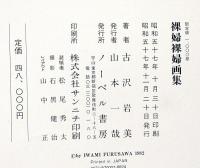 限定版一、〇〇〇部
裸婦裸婦画集
昭和五十七年十月三十日印刷
昭和五十七年十一月二十日発行
著者 古沢岩美
発行者 山本一哉
発行所 ノーベル書房
印刷所 株式会社サンニチ印刷
装幀者 松尾秀太
撮影 石黒健治
山中中正
定価 四八、〇〇〇円
©by IWAMI FURUSAWA 1982
Printed in JAPAN